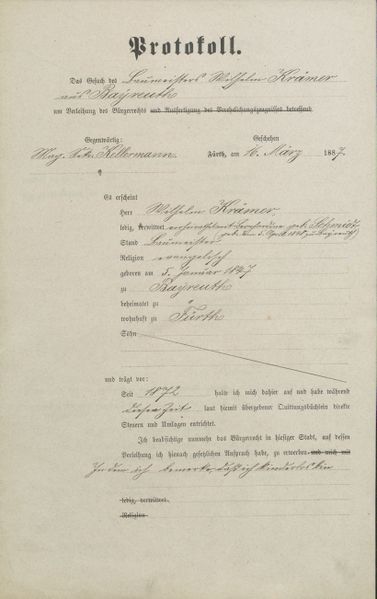 Protokoll.
Das Gesuch des Baumeisters Wilhelm Krämer
aus Bayreuth
um Verleihung des Bürgerrechts und Ausfertigung des Verehelichungszeugnisses betreffend.
Gegenwärtig:
Mag. Sekr. Kellermann
Geschehen
Fürth, am 16. März 1887.
Es erscheint
Herr Wilhelm Krämer,
ledig, verwittwet, verheirathet geb. Schmidt
Stand Baumeister
Religion evangelisch
geboren am 5. Januar 1847
zu Bayreuth
beheimatet zu "
wohnhaft zu Fürth
Sohn
und trägt vor:
Seit 1872 halte ich mich dahier auf und habe während
dieser Zeit laut hiemit übergebener Quittungsbüchlein direkte
Steuern und Umlagen entrichtet.
Ich beabsichtige nunmehr das Bürgerrecht in hiesiger Stadt, auf dessen
Verleihung ich hienach gesetzlichen Anspruch habe, zu erwerben und mich mit
Indem ich bemerke, daß ich kinderlos bin
ledig, verwittwet,
Religion